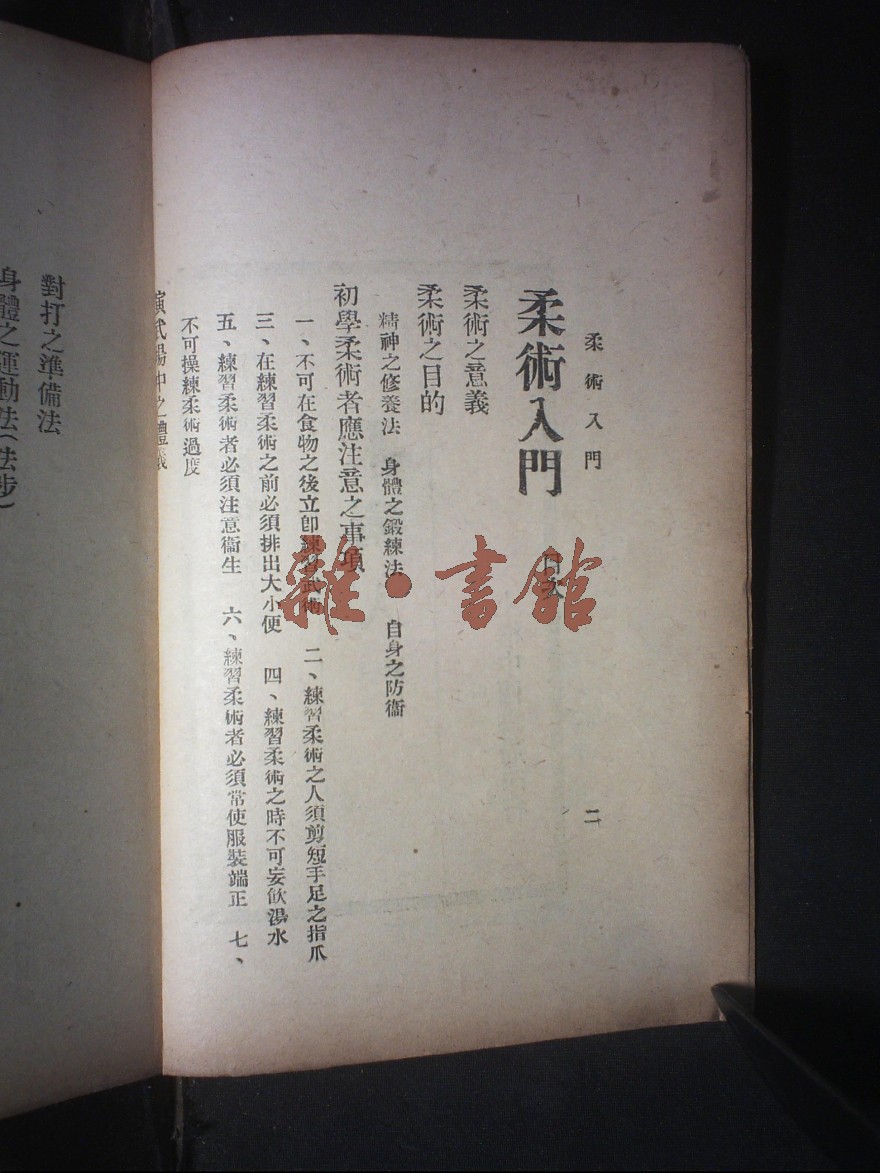 柔術入門
二
柔術入門 目次
柔術之意義
柔術之目的
精神之修養法 身體之鍛練法 自身之防衞
初學柔術者應注意之事項
一、不可在食物之後立卽練習武術 二、練習柔術之人須剪短手足之指爪
三、在練習柔術之前必須排出大小便 四、練習柔術之時不可妄飮湯水
五、練習柔術者必須注意衞生 六、練習柔術者必須常使服裝端正 七、
不可操練柔術過度
演武場中之禮義
對打之準備法
身體之運動法(法步)
雜·書館